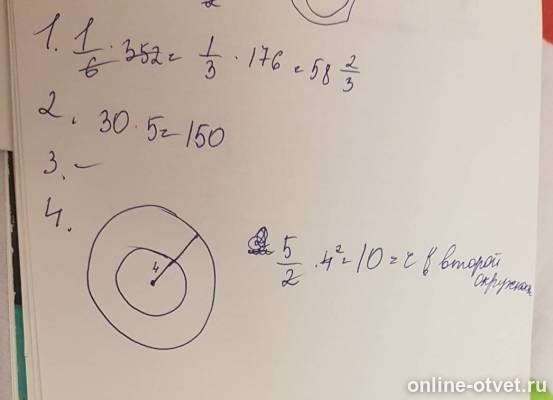 1. 1/6 · 352 = 1/3 · 176 = 58 2/3
2. 30 · 5 = 150
3. –
4.
4
5/2 · 4² = 10 = r в второй
окружн
online-otvet.ru